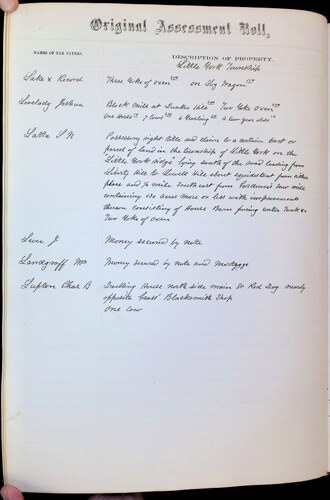 Original Assessment Roll,
NAMES OF TAX PAYERS.
DESCRIPTION OF PROPERTY.
Little York Township
Lake & Record Three Yoke of oxen on Log Wagon
Lovelady Joshua Block mill at Hunts Hill Two Yoke oxen
One Horse 7 Cows 4 Yearling 4 two year olds
Latta S N Possessory right title and claim to a certain tract or
parcel of land in the township of Little York on the
"Little York Ridge" lying south of the road leading from
Liberty Hill to Lowell Hill about equidistant from either
place and ¾ mile south east from Saw mill
containing 120 acres more or less with improvements
thereon consisting of House Barn fencing water Tank &
Two Yoke of oxen
J. Money secured by note
Landgraff Wm Money secured by note and mortgage
Lupton Chas B Dwelling House north side main St Red Dog nearly
opposite Blacksmith Shop
one cow